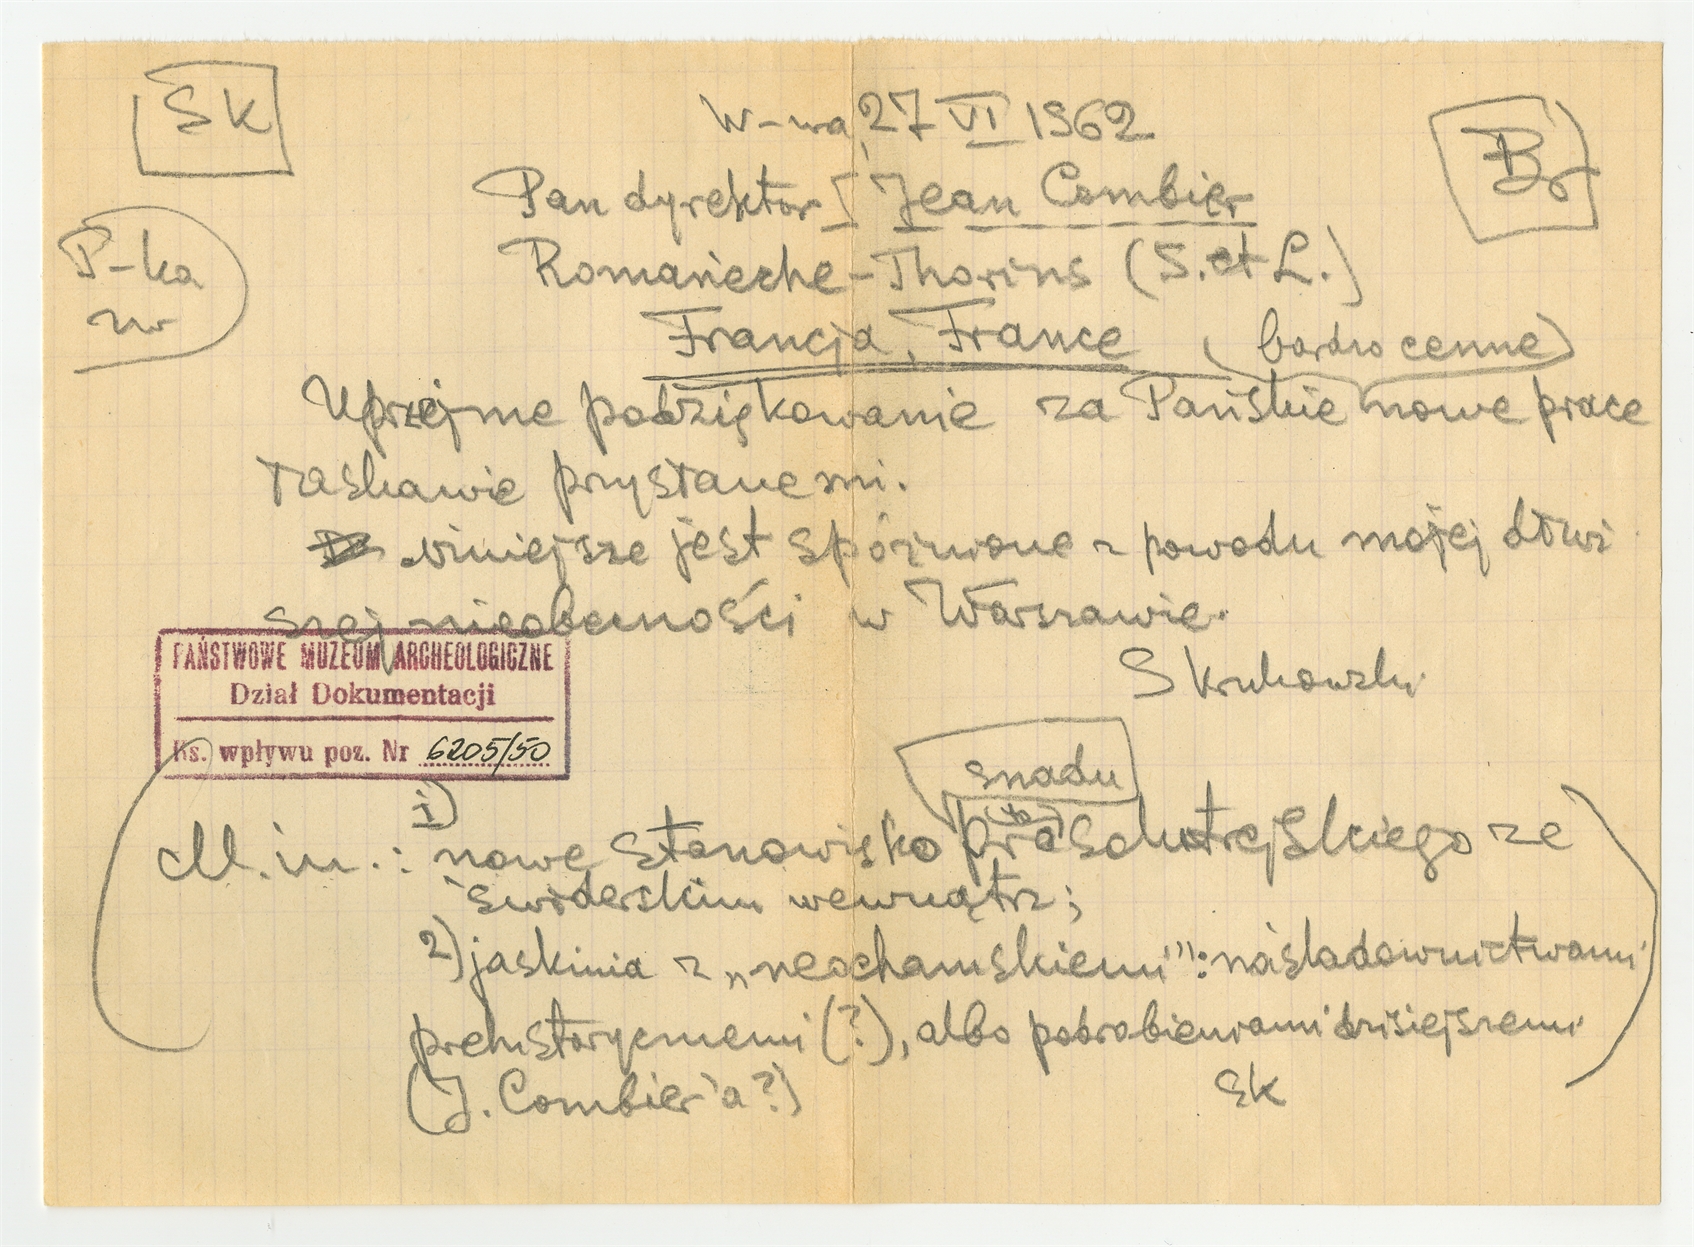 SK
W-wa, 27 VI 1962
Br
Pan dyrektor Jean Combier
P-ka
Romanèche-Thorins (S. et L.)
Francja, France (bardzo cenne)
Uprzejme podziękowanie za Pańskie nowe prace
łaskawie przysłane mi.
niniejsze jest spóźnione z powodu mojej dłuż
szej nieobecności w Warszawie.
S Krukowski
PAŃSTWOWE MUZEUM ARCHEOLOGICZNE
Dział Dokumentacji
Ks. wpływu poz. Nr 6205/50
snadu
M. in.: 1) nowe stanowisko prasolutrejskiego ze
świderskim wewnątrz;
2) jaskinia z „neochamskiemi”: naśladownictwami
prehistorycznemi (?), albo podrobieniami dzisiejszemi
(J. Combier'a?)
SK